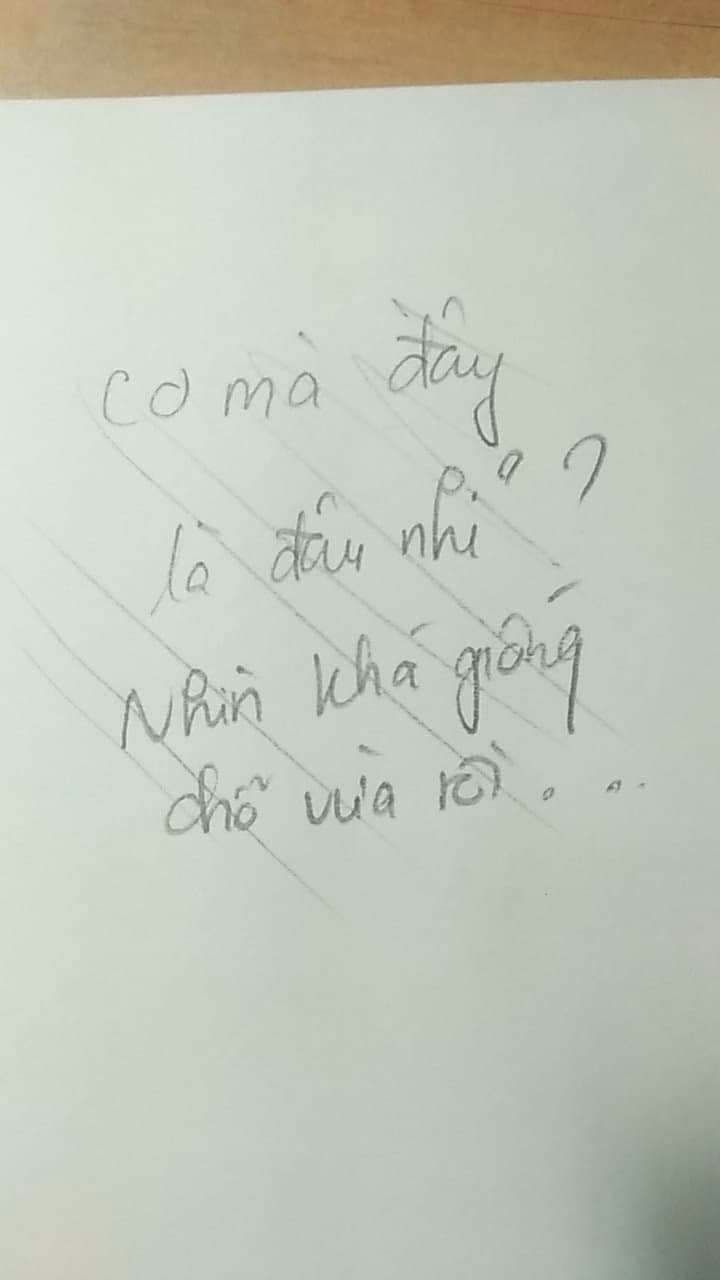 Cơ mà đây
là đâu nhỉ ?
Nhìn khá giống
chỗ vừa rồi . . .